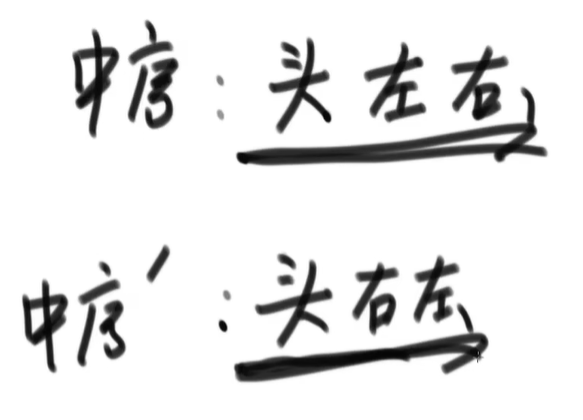 中序:头左右
中序′:头右左